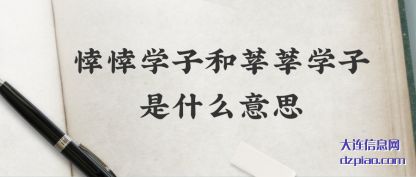 悻悻学子和莘莘学子
是什么意思
大连信息网
dzpiao.com